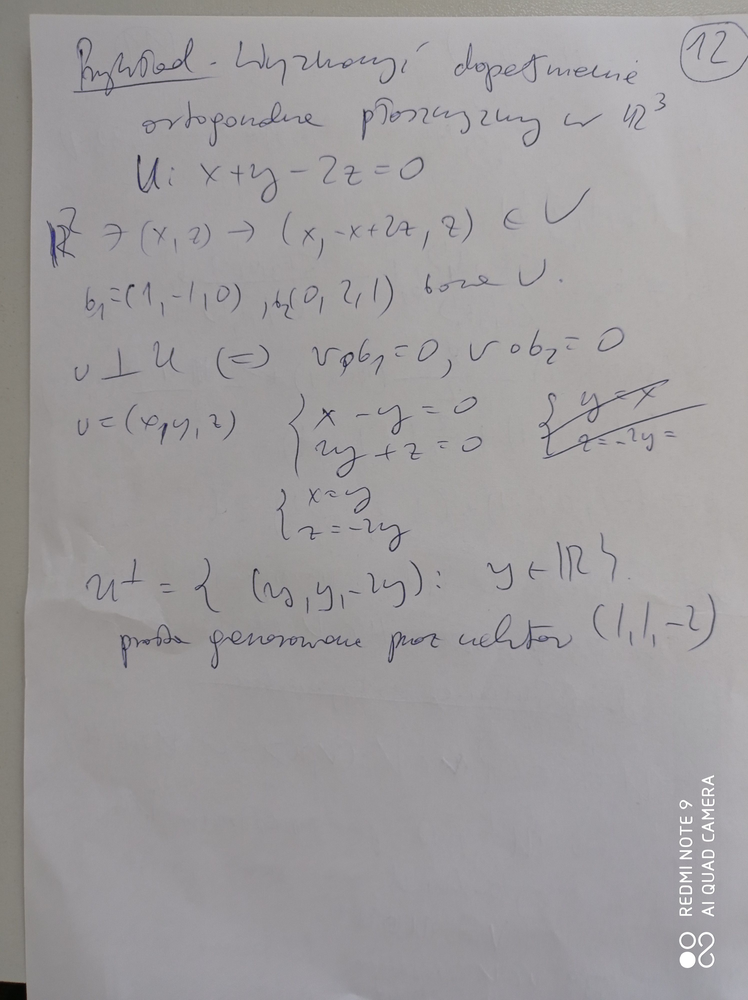 12
Przykład - Wyznaczyć dopełnienie
ortogonalne płaszczyzny w ℝ³
U: x+y-2z=0
ℝ² ∋ (x,z) → (x,-x+2z, z) ∈ U
b₁=(1,-1,0), b₂(0,2,1) baza U.
v ⊥ U (=) v∘b₁=0, v∘b₂=0
v=(x,y,z) { x-y=0 { y=x
2y+z=0 z=-2y=
{ x=y
z=-2y
U⊥ = { (y,y,-2y): y∈ℝ}.
prosta generowana przez wektor (1,1,-2)
REDMI NOTE 9
AI QUAD CAMERA